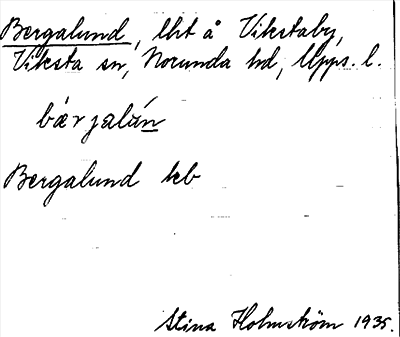 Bergalund, lht å Vikstaby,
Viksta sn, Norunda hd, Upps. l.
bærjalún
Bergalund kb
Stina Holmström 1935.